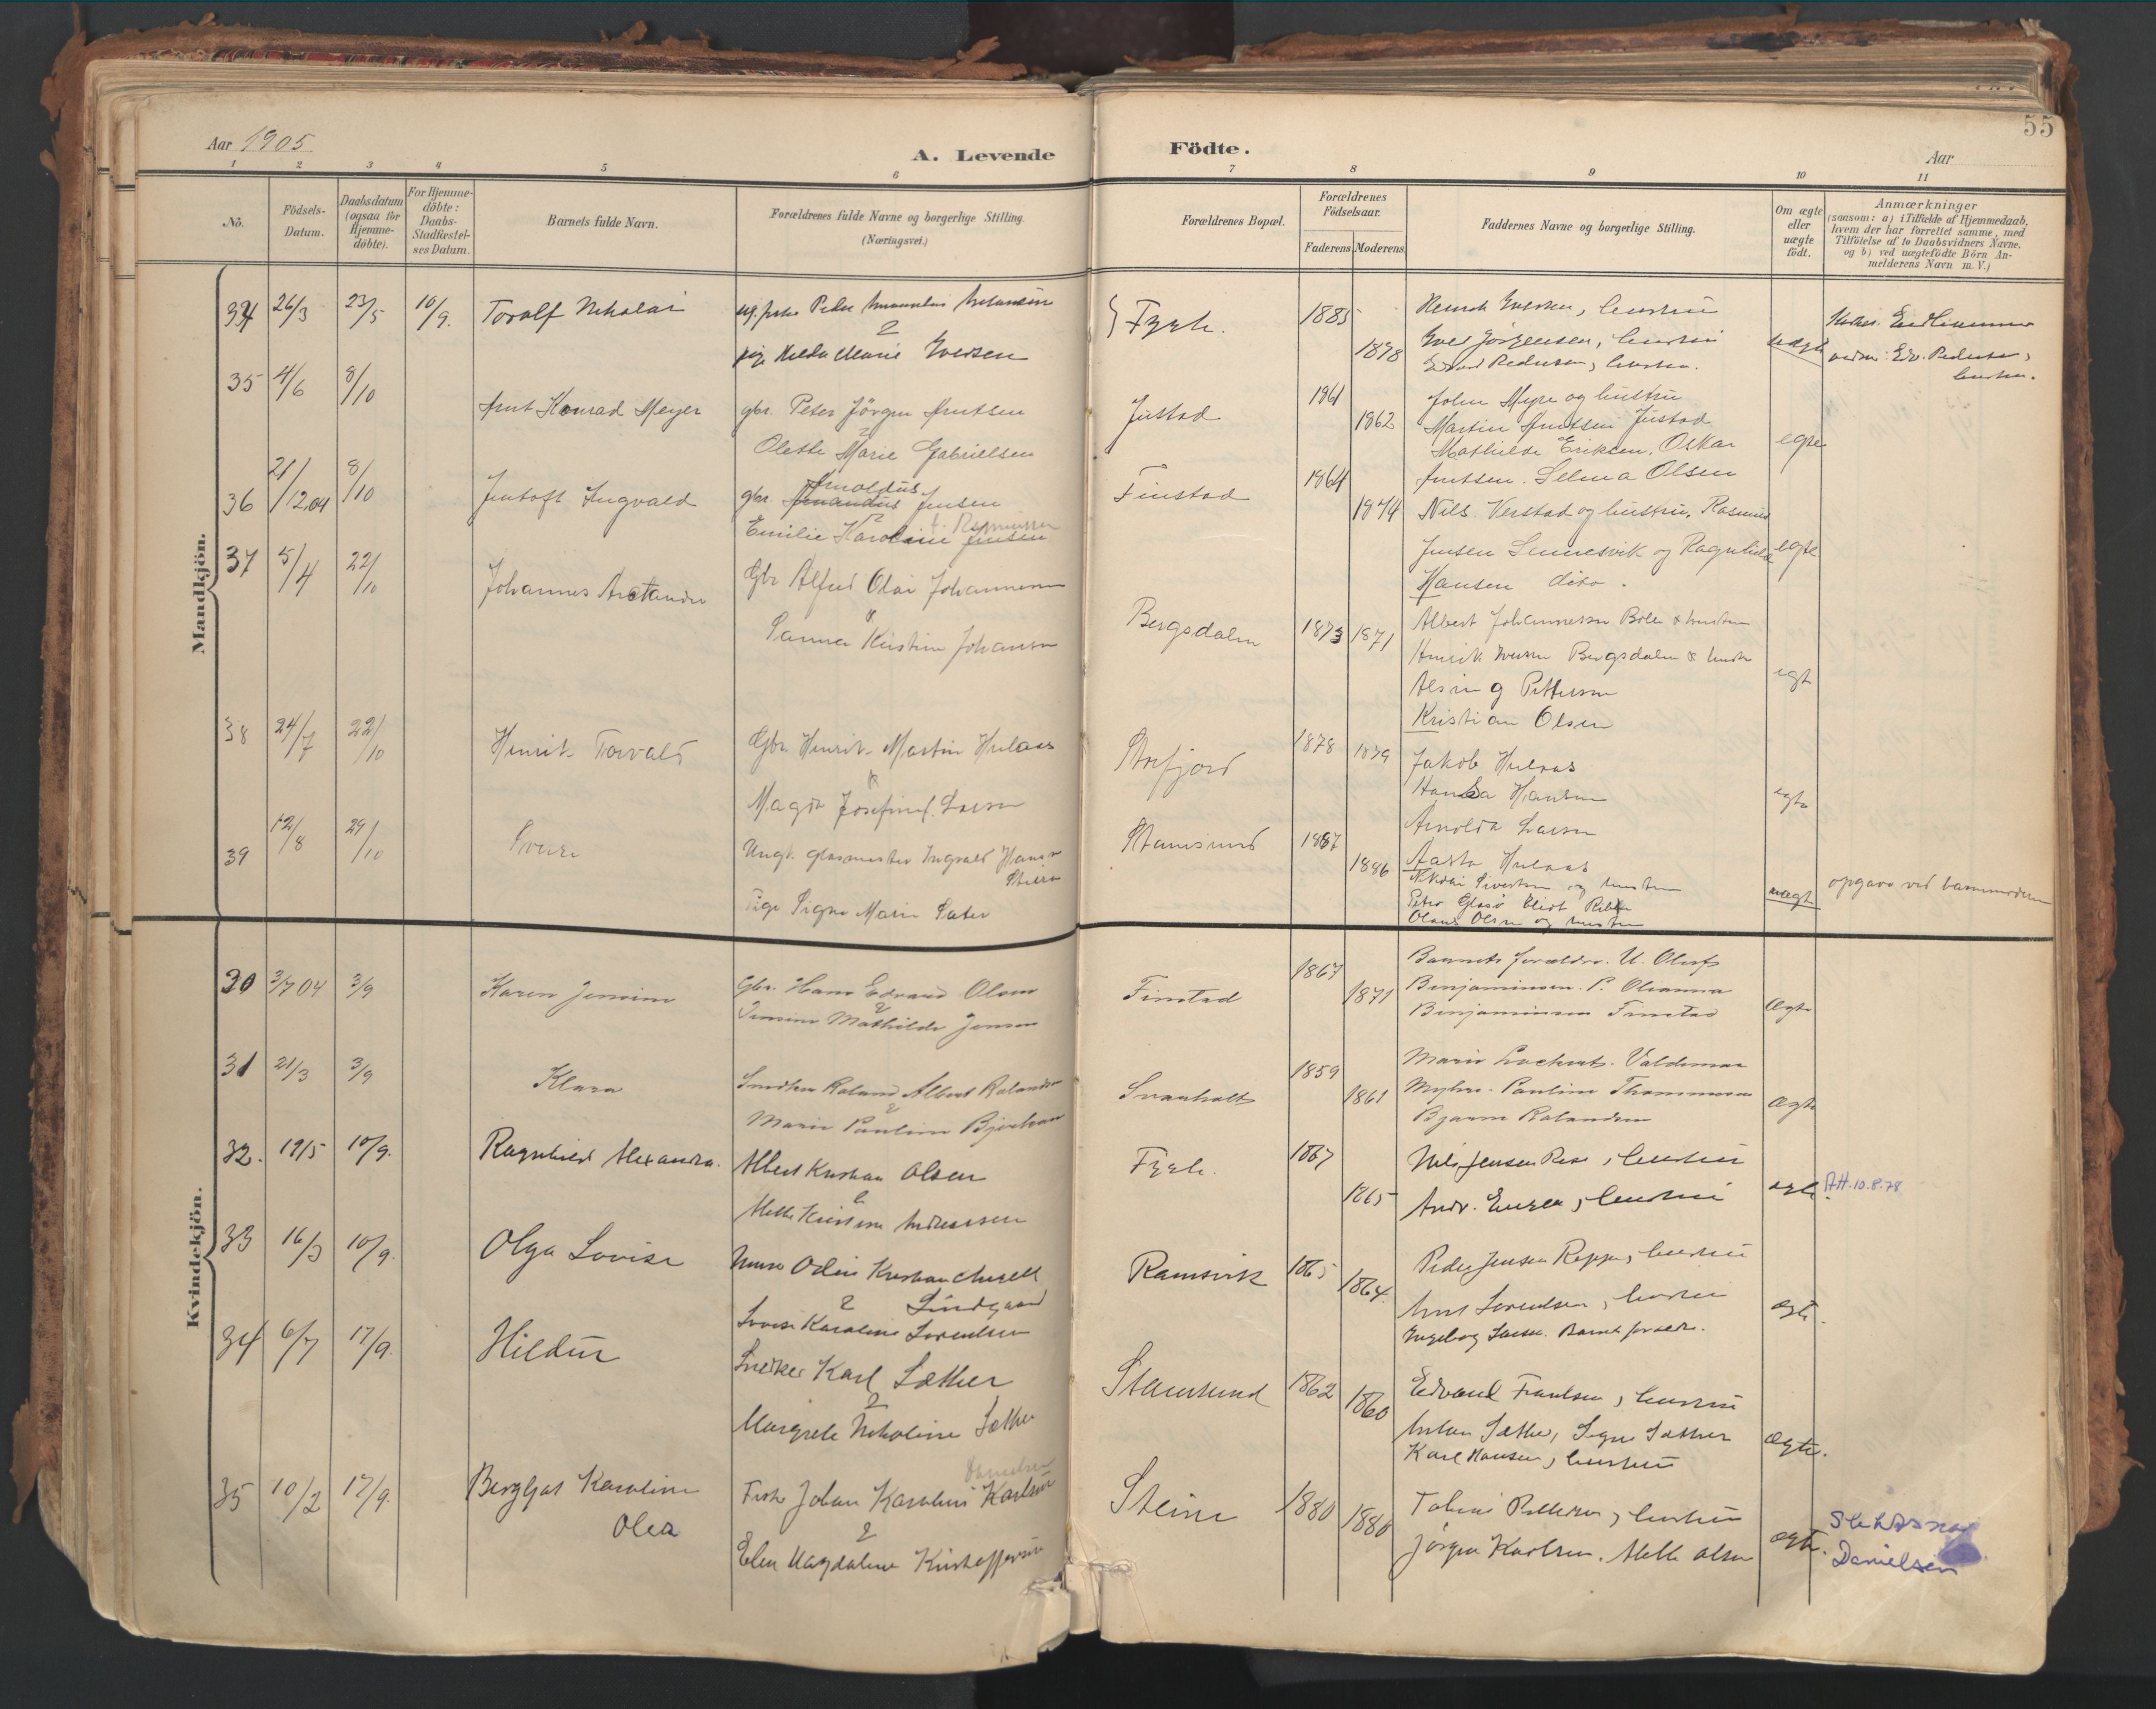 Aar 1905
A. Levende
Födte.
Aar
55
1 2 3 4 5 6 7 8 9 10 11
No.
Födsels-
Datum.
Daabsdatum
(ogsaa for
Hjemme-
döbte).
For Hjemme-
döbte:
Daabs-
Stadfæstel-
ses Datum.
Barnets fulde Navn.
Forældrenes fulde Navne og borgerlige Stilling.
(Næringsvei.)
Forældrenes Bopæl.
Forældrenes
Födselsaar.
Faderens Moderens
Faddernes Navne og borgerlige Stilling.
Om ægte
eller
uægte
födt.
Anmærkninger
(saasom: a) i Tilfælde af Hjemmedaab,
hvem der har forrettet samme, med
Tilföielse af to Daabsvidners Navne,
og b) ved uægtefödte Börn An-
melderens Navn m. V.)
Mandkjön.
34 26/3 23/5 10/9. Toralf Nikolai
Hilda Marie Iversen
Fygle. 1885 1878
Iver Jörgensen, hustru
Edvard Pedersen, hustru.
uægte
35 4/6 8/10 Arnt Konrad Meyer gbr. Peter Jörgen Arntsen
Olette Marie Gabrielsen
Justad 1861 1862
John Myre og hustru
Martin Arntsen Justad
Mathilde Eriksen, Oskar
Arntsen. Selma Olsen
egte
36 21/12.04 8/10 Jentoft Ingvald gbr. Arnoldus Jensen
Emilie Karoline Jensen
Finstad 1864 1874
Nils Verstad og hustru, Rasmus
Jensen Sennesvik og Ragnhild
Hansen dito.
egte
37 5/4 22/10 Johannes Arctander Gbr Alfred Olai Johannessen
&
Sanna Kristine Johansen
Bergsdalen 1873 1871
Albert Johannessen Böle & hustru
Henrik Iversen Bergsdalen & hustru
Alsing Pettersen
Kristian Olsen
egte
38 24/7 22/10 Henrik Torvald Gbr. Henrik Martin Hulaas
&
Magda Josefine Larsen
Strefjord 1878 1879
Jakob Hulaas
Hansa Hansen
Arnolda Larsen
Aasta Hulaas
egte
39 12/8 29/10 Sverre Ungk. glasmester Ingvald Hansen
Pige Signe Marie Sæter
Stamsund 1887 1886
Nikolai Sivertsen og hustru
Olaus Olsen og hustru
uægte opgave ved barnemoderen
Kvindekjön.
30 3/7 04 3/9 Karen Jensine Gbr. Hans Edvard Olsen
&
Jensine Mathilde Jensen
Finstad 1867 1871
Barnets forældre. U. Oluf
Benjaminsen. P. Oleanna
Benjaminsen Finstad
Ægte
31 21/3 3/9 Klara Snedker Roland Albert Rolandsen
&
Marie Pauline
Svanholt 1859 1861
Marie Lockert. Valdemar
Myhre. Pauline Thommesen
Bjarne Rolandsen
Ægte
32. 19/5 10/9. Ragnhild Alexandra. Albert Kristian Olsen
&
Mette Kristine Andreassen
Fygle. 1867 1865
Nils Jensen Resa, hustru
Andr. Engen, hustru
ægte. AH.10.8.78
33 16/3 10/9. Olga Lovise Murer Odin Kristian
Lindgaard
&
Lovise Karoline Sorentsen
Ramsvik 1865 1864.
Peder Jensen Reppe, hustru
Arnt Sorentsen, hustru
Ingeborg Larsen. Barnets forældre.
ægte.
34 6/7 17/9. Hildur Snedker Karl Sæther
&
Margrete Nikoline Sæther
Stamsund 1862 1860
Edvard Frantsen, hustru
Anton Sæther, Signe Sæther
Karl Hansen, hustru
Ægte.
35 10/2 17/9. Bergljot Karoline
Olea
Danielsen
Fisker Johan Karolius Karlsen
&
Elen Magdalene Kristoffersen
Steine 1880 1880
Tobias Pettersen, hustru
Jörgen Karlsen. Mette Olsen
ægte.
Slektsnavn
Danielsen